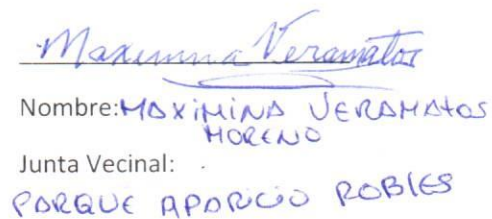 Maximina Veramatos
Nombre: MAXIMINA VERAMATOS
MORENO
Junta Vecinal:
PARQUE APARICIO ROBLES